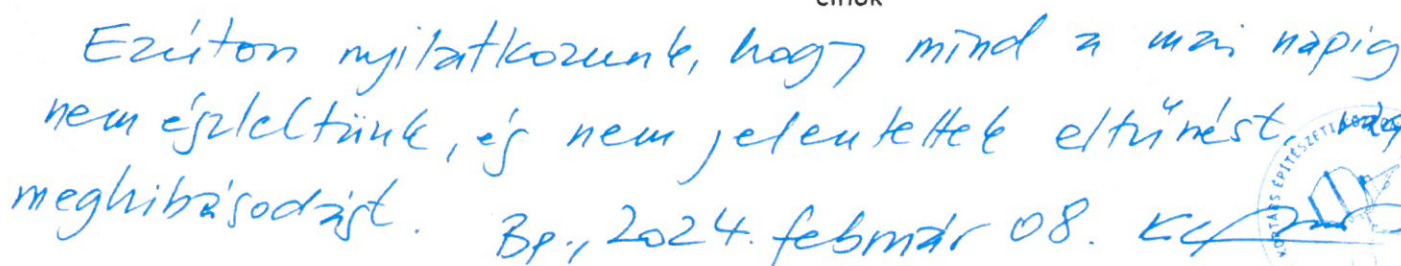 elnök
Ezúton nyilatkozunk, hogy mind a mai napig
nem észleltünk, és nem jelentettek eltűnést, vagy
meghibásodást. Bp., 2024. február 08.
KORTÁRS ÉPÍTÉSZETI